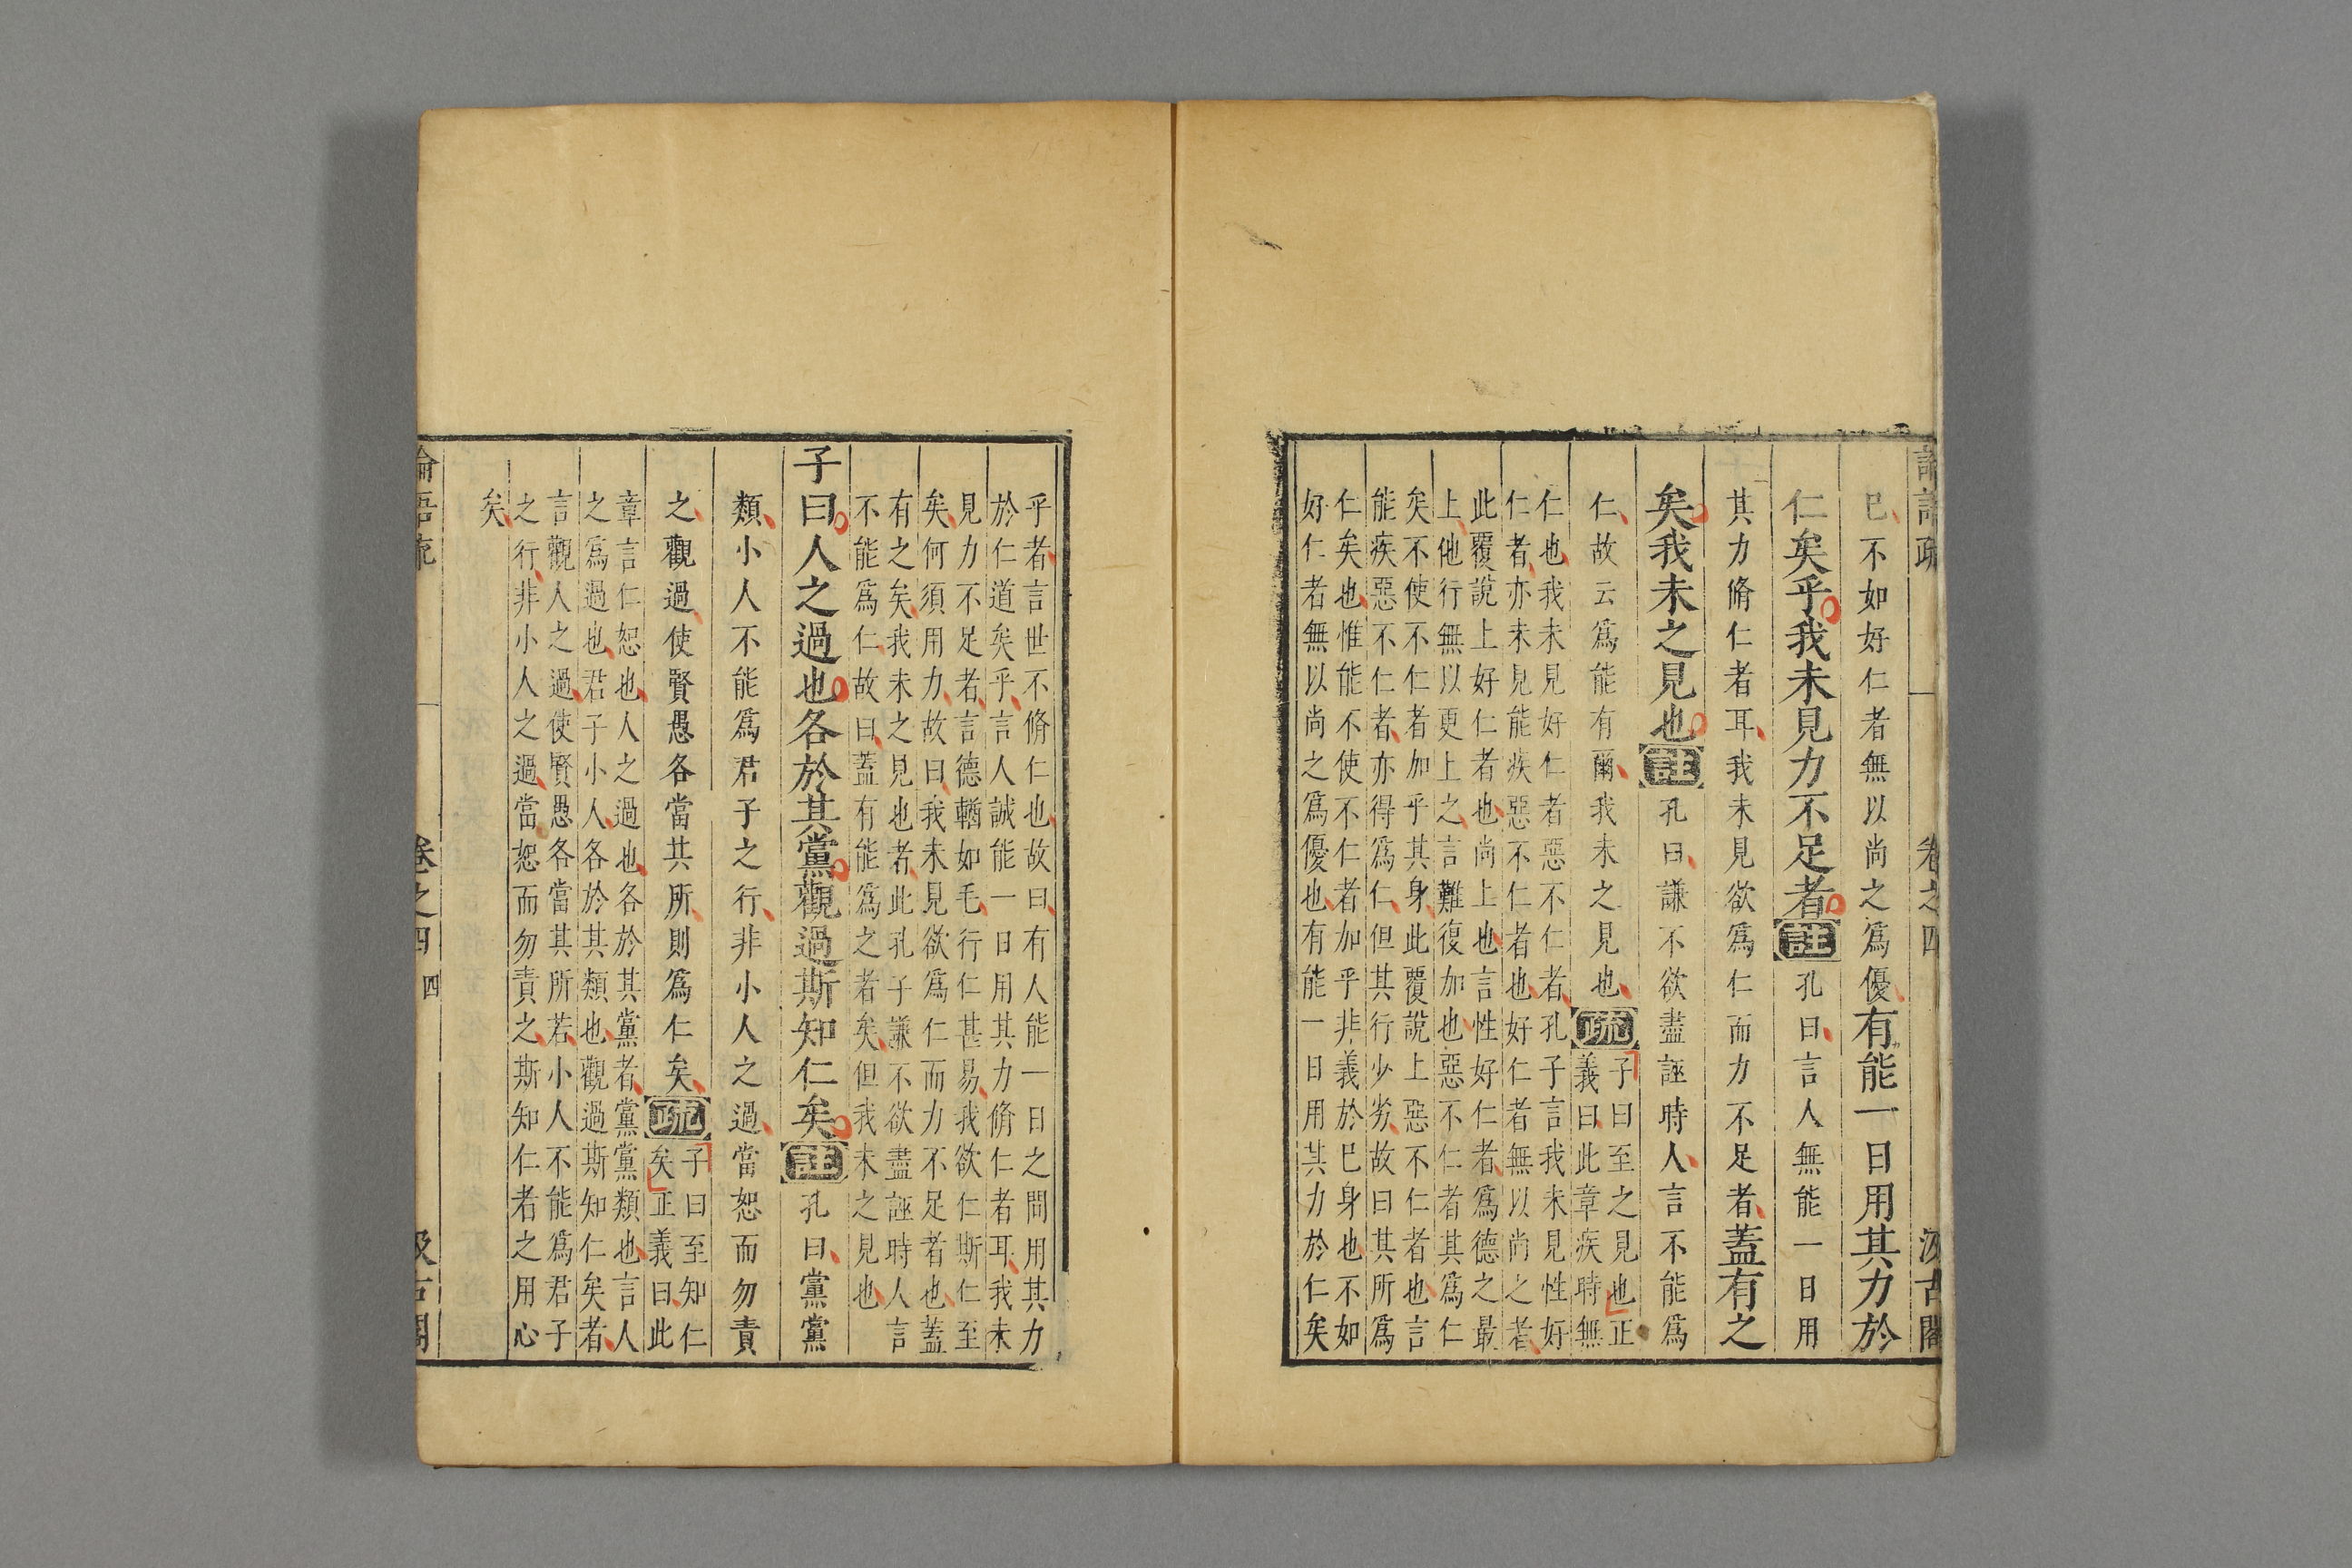 論語疏 卷之四 汲古閣
已不如好仁者無以尚之爲優有能一日用其力於
仁矣乎我未見力不足者註孔曰言人無能一日用
其力脩仁者耳我未見欲爲仁而力不足者蓋有之
矣我未之見也註孔曰謙不欲盡誣時人言不能爲
仁故云爲能有爾我未之見也疏
子曰至之見也正
義曰此章疾時無
仁也我未見好仁者惡不仁者孔子言我未見性好
仁者亦未見能疾惡不仁者也好仁者無以尚之者
此覆說上好仁者也尚上也言性好仁者爲德之最
上他行無以更上之言難復加也惡不仁者其爲仁
矣不使不仁者加乎其身此覆說上惡不仁者也言
能疾惡不仁者亦得爲仁但其行少劣故曰其所爲
仁矣也惟能不使不仁者加乎非義於己身也不如
好仁者無以尚之爲優也有能一日用其力於仁矣
乎者言世不脩仁也故曰有人能一日之間用其力
於仁道矣乎言人誠能一日用其力脩仁者耳我未
見力不足者言德輶如毛行仁甚易我欲仁斯仁至
矣何須用力故曰我未見欲爲仁而力不足者也蓋
有之矣我未之見也者此孔子謙不欲盡誣時人言
不能爲仁故曰蓋有能爲之者矣但我未之見也
子曰人之過也各於其黨觀過斯知仁矣註孔曰黨黨
類小人不能爲君子之行非小人之過當恕而勿責
之觀過使賢愚各當其所則爲仁矣疏
子曰至知仁
矣正義曰此
章言仁恕也人之過也各於其黨者黨黨類也言人
之爲過也君子小人各於其類也觀過斯知仁矣者
言觀人之過使賢愚各當其所若小人不能爲君子
之行非小人之過當恕而勿責之斯知仁者之用心
矣
論語疏 卷之四 四 汲古閣